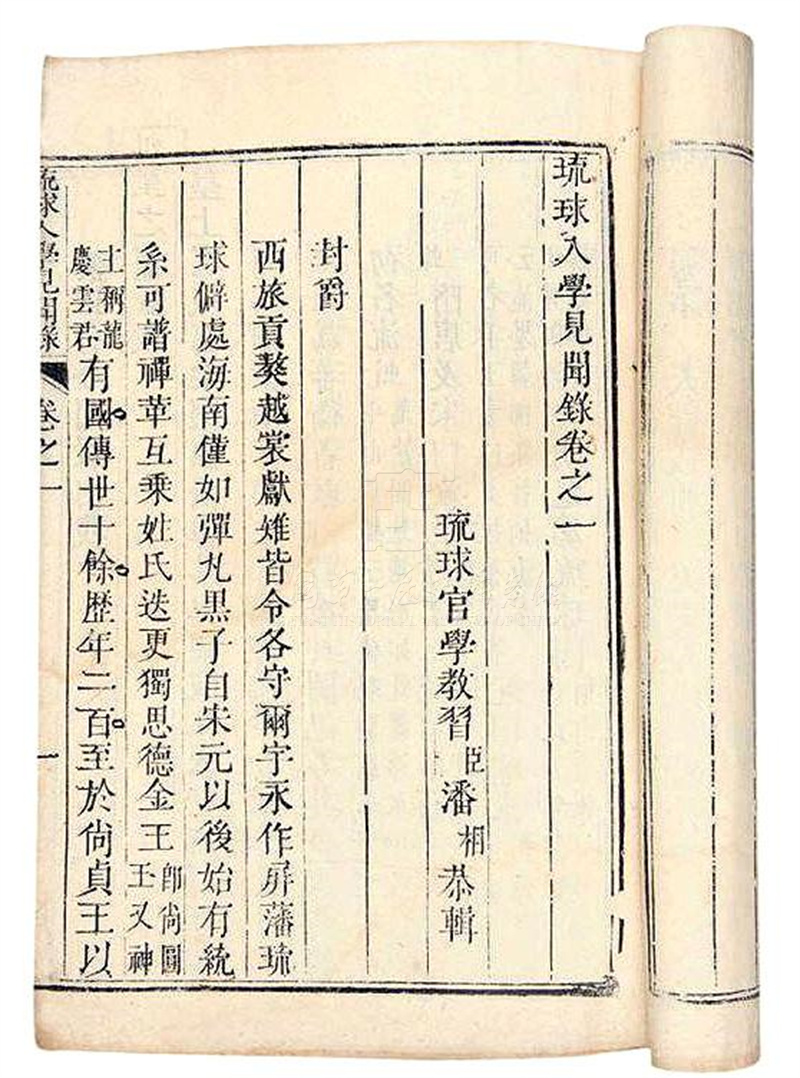 琉球入學見聞錄卷之一
琉球官學教習臣潘相恭輯
封爵
西旅貢獒越裳獻雉皆令各守爾宇永作屏藩琉
球僻處海南僅如彈丸黑子自宋元以後始有統
系可譜禪革互乘姓氏迭更獨思德金王卽尙圓王又神
主稱龍慶雲君有國傳世十餘歷年二百至於尙貞王以
琉球入學見聞錄 卷之一 一